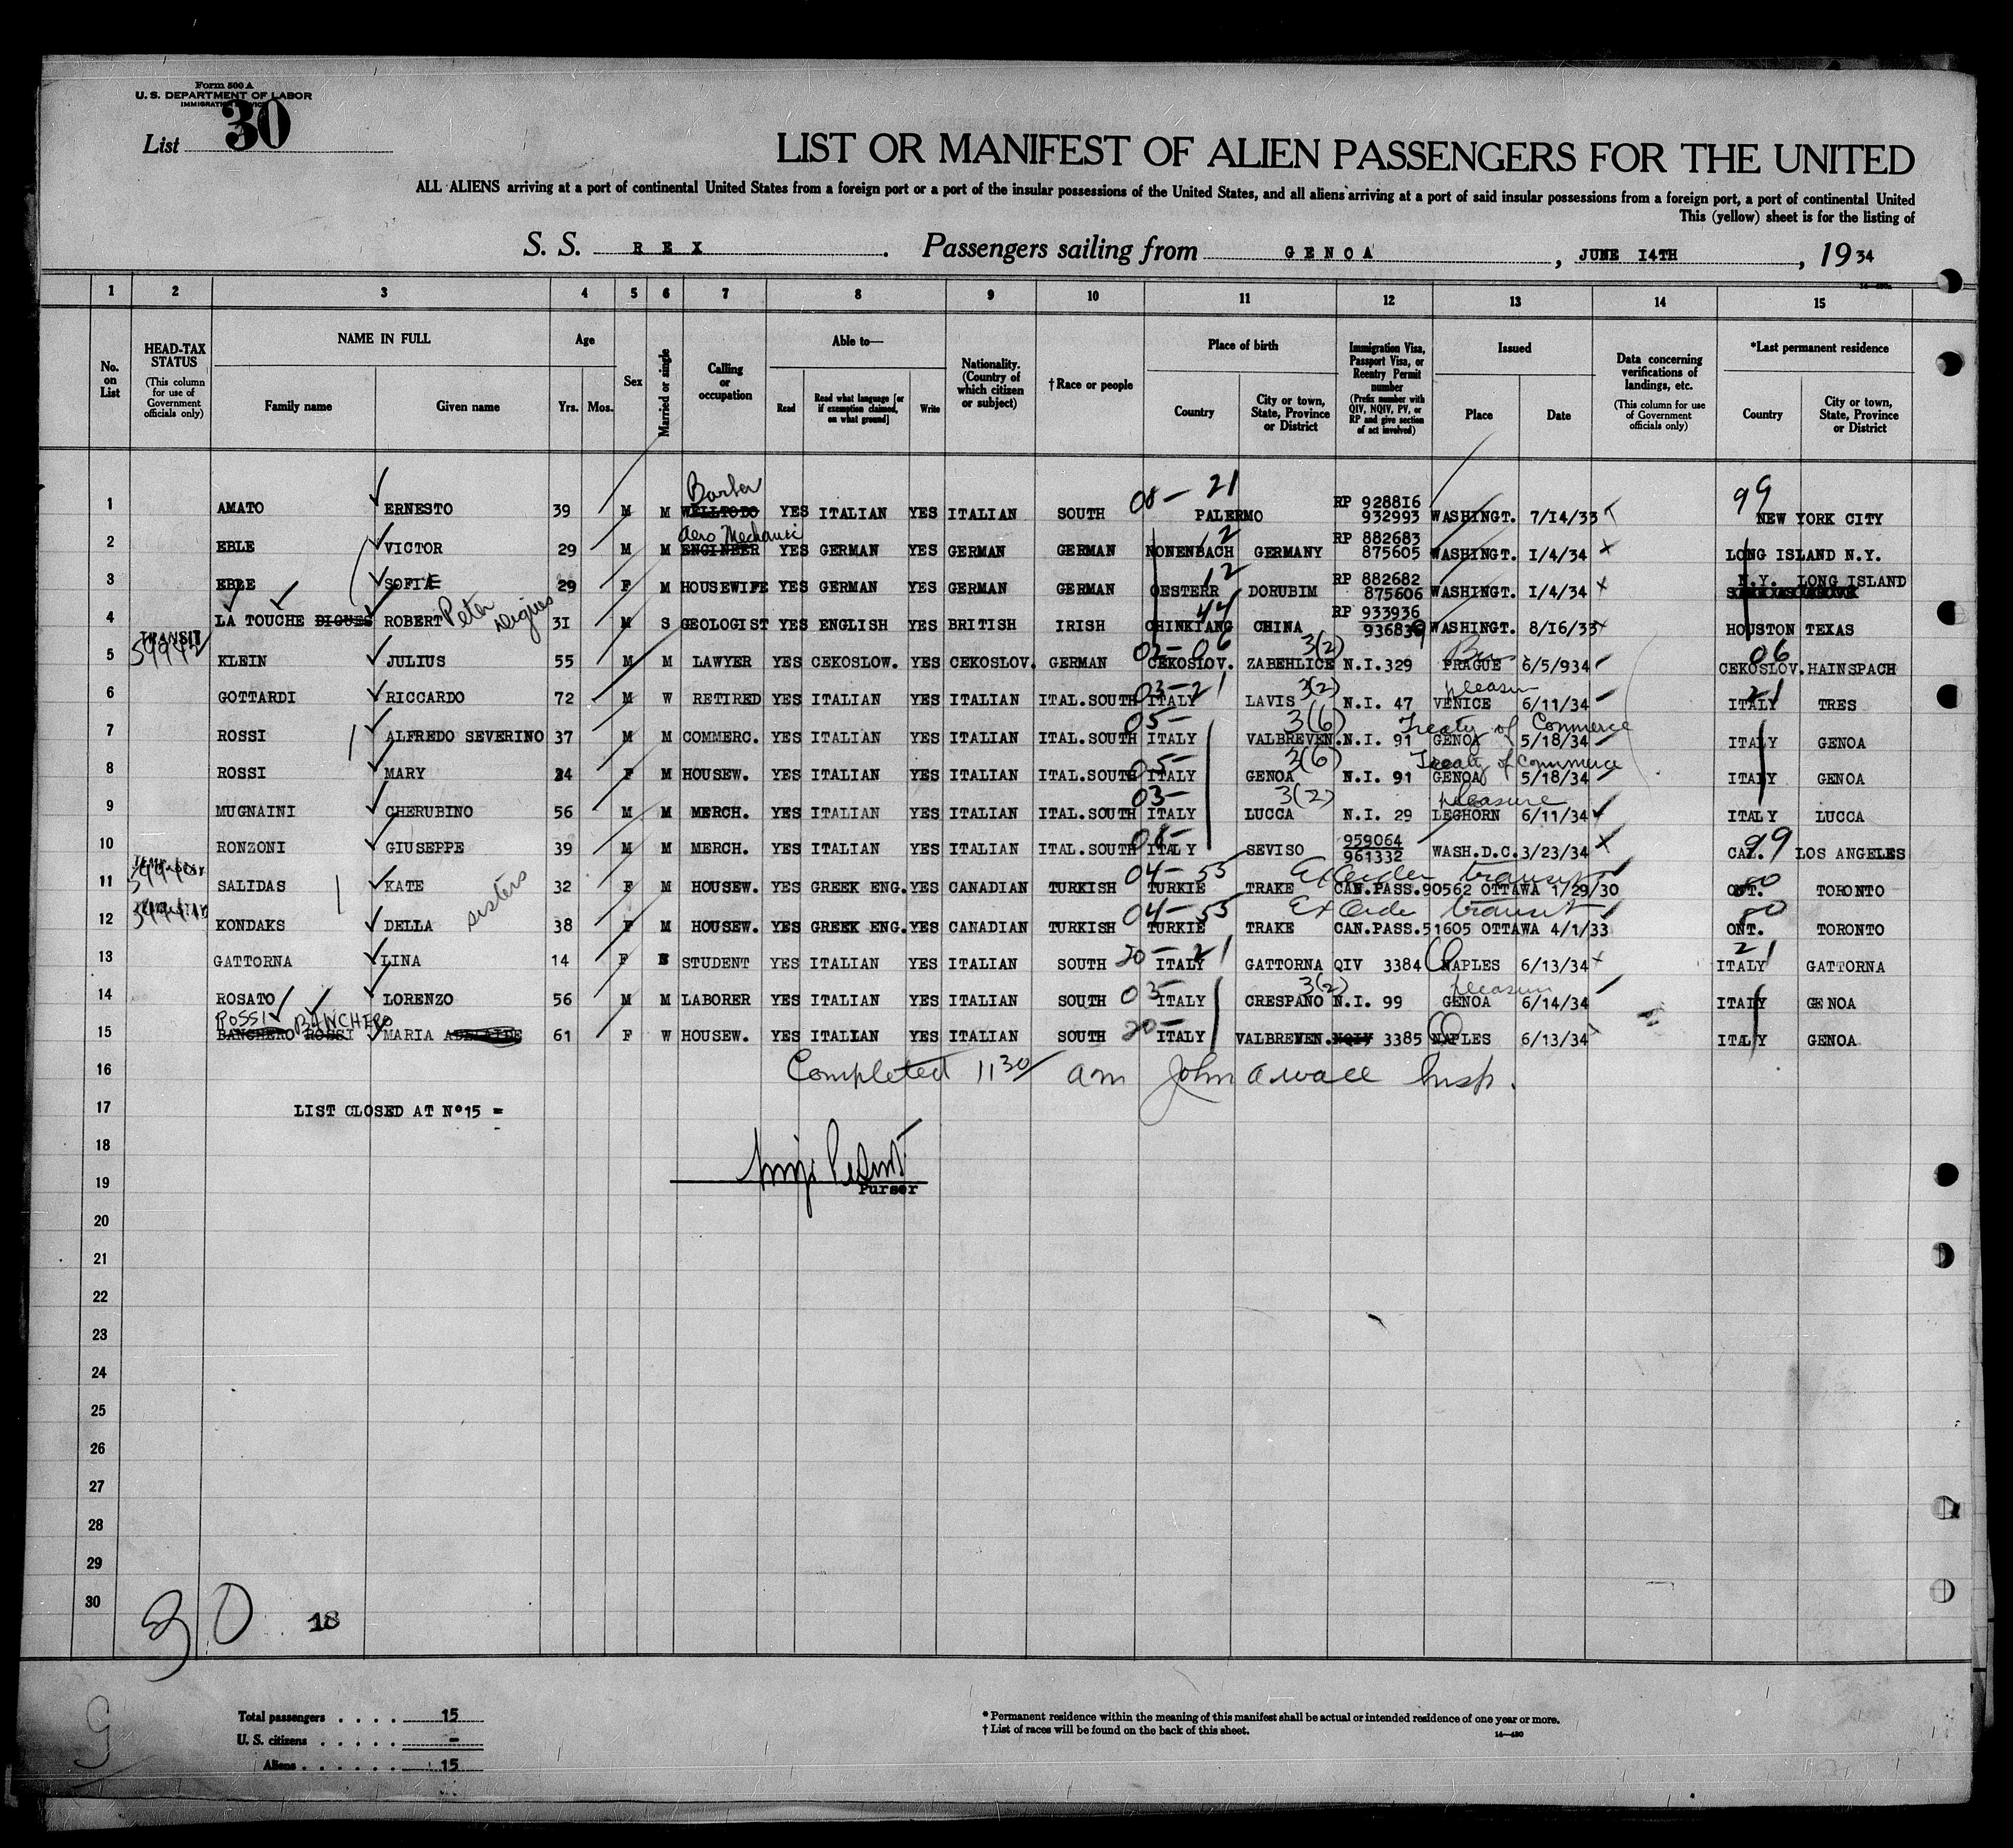 Form 500 A
U. S. DEPARTMENT OF LABOR
IMMIGRATION SERVICE
List 30
LIST OR MANIFEST OF ALIEN PASSENGERS FOR THE UNITED
ALL ALIENS arriving at a port of continental United States from a foreign port or a port of the insular possessions of the United States, and all aliens arriving at a port of said insular possessions from a foreign port, a port of continental United
This (yellow) sheet is for the listing of
S. S. REX. Passengers sailing from GENOA, JUNE 14TH, 1934
1 2 3 4 5 6 7 8 9 10 11 12 13 14 15
No. on List
HEAD-TAX STATUS (This column for use of Government officials only)
NAME IN FULL Family name Given name
Age Yrs. Mos.
Sex
Married or single
Calling or occupation
Able to— Read Read what language [or if exemption claimed, on what ground] Write
Nationality. (Country of which citizen or subject)
† Race or people
Place of birth Country City or town, State, Province or District
Immigration Visa, Passport Visa, or Reentry Permit number (Prefix number with QIV, NQIV, PV, or RP and give section of act involved)
Issued Place Date
Data concerning verifications of landings, etc. (This column for use of Government officials only)
*Last permanent residence Country City or town, State, Province or District
Barber 08- 21 RP 928816 99
1 AMATO ERNESTO 39 M M WELLTODO YES ITALIAN YES ITALIAN SOUTH PALERMO 932993 WASHINGT. 7/14/33 NEW YORK CITY
Aero Mechanic 12 RP 882683
2 EBLE VICTOR 29 M M ENGINEER YES GERMAN YES GERMAN GERMAN NONENBACH GERMANY 875605 WASHINGT. 1/4/34 LONG ISLAND N.Y.
12 RP 882682 N.Y. LONG ISLAND
3 EBLE SOFIE 29 F M HOUSEWIFE YES GERMAN YES GERMAN GERMAN OESTERR DORUBIM 875606 WASHINGT. 1/4/34
Peter Digues 44 RP 933936
4 LA TOUCHE DIGUES ROBERT 31 M S GEOLOGIST YES ENGLISH YES BRITISH IRISH CHINKIANG CHINA 936839 WASHINGT. 8/16/33 HOUSTON TEXAS
TRANSIT 02-06 3(2) Bus 06
5 KLEIN JULIUS 55 M M LAWYER YES CEKOSLOW. YES CEKOSLOV. GERMAN CEKOSLOV. ZABEHLICE N.I.329 PRAGUE 6/5/934 CEKOSLOV. HAINSPACH
03-21 3(2) pleasure 21
6 GOTTARDI RICCARDO 72 M W RETIRED YES ITALIAN YES ITALIAN ITAL.SOUTH ITALY LAVIS N.I. 47 VENICE 6/11/34 ITALY TRES
05- 3(6) Treaty of Commerce
7 ROSSI ALFREDO SEVERINO 37 M M COMMERC. YES ITALIAN YES ITALIAN ITAL.SOUTH ITALY VALBREVEN. N.I. 91 GENOA 5/18/34 ITALY GENOA
05- 3(6) Treaty of Commerce
8 ROSSI MARY 24 F M HOUSEW. YES ITALIAN YES ITALIAN ITAL.SOUTH ITALY GENOA N.I. 91 GENOA 5/18/34 ITALY GENOA
03- 3(2) pleasure
9 MUGNAINI CHERUBINO 56 M M MERCH. YES ITALIAN YES ITALIAN ITAL.SOUTH ITALY LUCCA N.I. 29 LEGHORN 6/11/34 ITALY LUCCA
08- 959064 99
10 RONZONI GIUSEPPE 39 M M MERCH. YES ITALIAN YES ITALIAN ITAL.SOUTH ITALY SEVISO 961332 WASH.D.C. 3/23/34 CAL. LOS ANGELES
sisters 04-55 Ex Order transit 80
11 SALIDAS KATE 32 F M HOUSEW. YES GREEK ENG. YES CANADIAN TURKISH TURKIE TRAKE CAN.PASS.90562 OTTAWA 1/29/30 ONT. TORONTO
04-55 Ex Order transit 80
12 KONDAKS DELLA 38 F M HOUSEW. YES GREEK ENG. YES CANADIAN TURKISH TURKIE TRAKE CAN.PASS.51605 OTTAWA 4/1/33 ONT. TORONTO
20- 21 21
13 GATTORNA LINA 14 F S STUDENT YES ITALIAN YES ITALIAN SOUTH ITALY GATTORNA QIV 3384 NAPLES 6/13/34 ITALY GATTORNA
03- 3(2) pleasure
14 ROSATO LORENZO 56 M M LABORER YES ITALIAN YES ITALIAN SOUTH ITALY CRESPANO N.I. 99 GENOA 6/14/34 ITALY GENOA
ROSSI BANCHERO 20-
15 BANCHERO ROSSI MARIA ADELAIDE 61 F W HOUSEW. YES ITALIAN YES ITALIAN SOUTH ITALY VALBREVEN. NQIV 3385 NAPLES 6/13/34 ITALY GENOA
16 Completed 11 30 am John A Wall Insp.
17 LIST CLOSED AT No 15 =
18
19 Purser
20
21
22
23
24
25
26
27
28
29
30
30 18
Total passengers . . . . 15
U. S. citizens . . . . . -
Aliens . . . . . . 15
* Permanent residence within the meaning of this manifest shall be actual or intended residence of one year or more.
† List of races will be found on the back of this sheet.
14—430